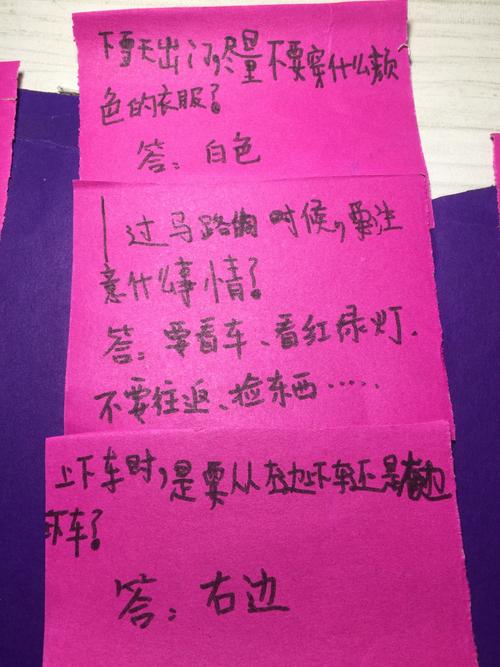 下雪天出门,尽量不要穿什么颜
色的衣服?
答:白色
过马路的时候,要注
意什么事情?
答:要看车、看红绿灯.
不要往返、捡东西……
上下车时,是要从左边下车还是右边
下车?
答:右边